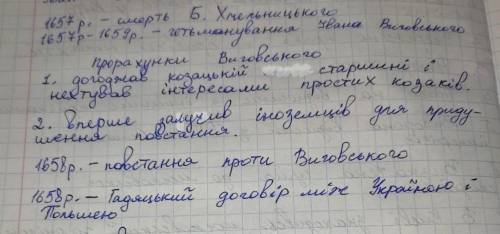 1657р. - смерть Б. Хмельницького
1657р-1659р. - гетьманування Івана Виговського
Прорахунки Виговського
1. догоджав козацькій старшині і
нехтував інтересами простих козаків.
2. Вперше залучив іноземців для приду-
шення повстання.
1658р. - повстання проти Виговського
1658р. - Гадяцький договір між Україною і
Польшею